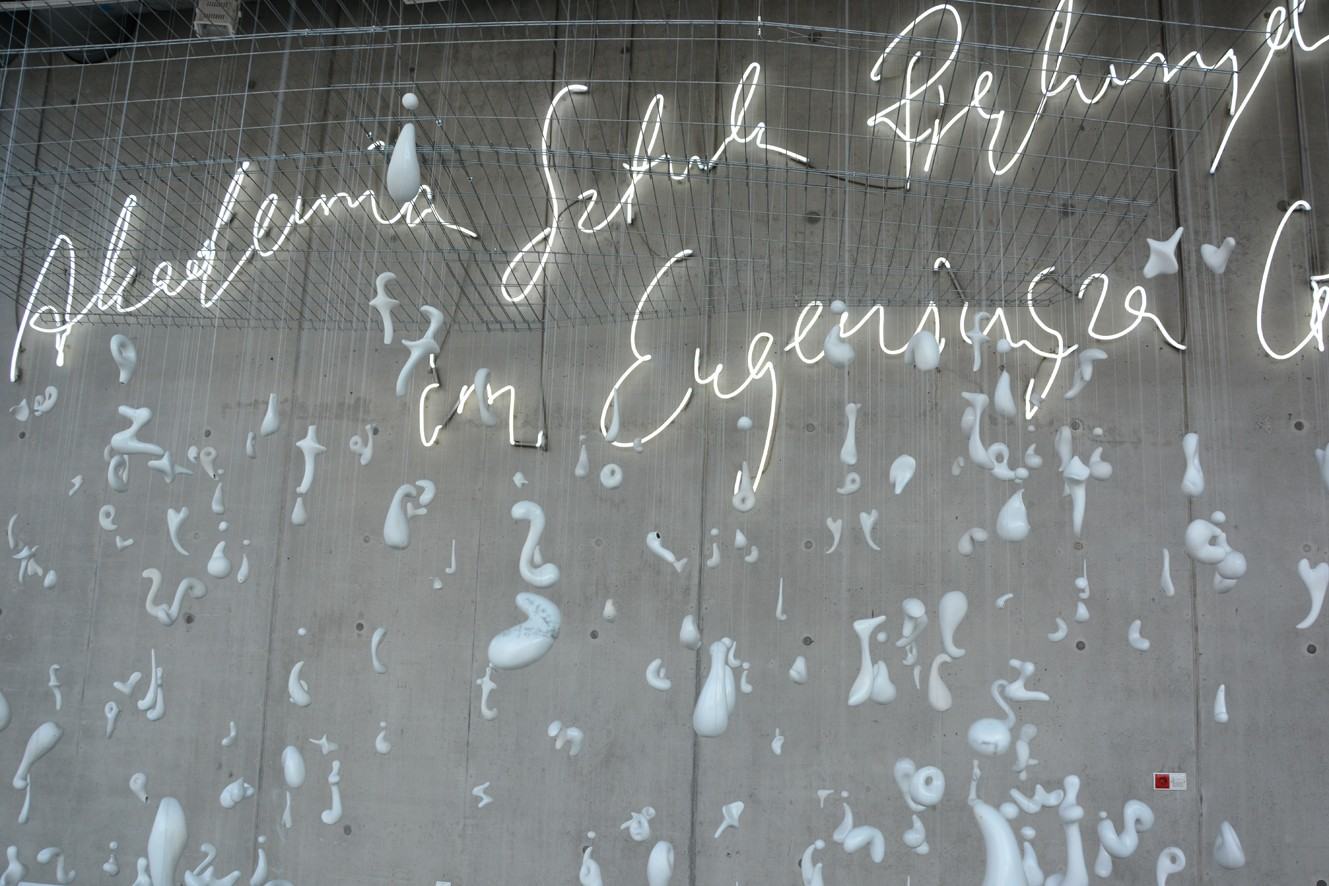 Akademia Sztuk Pięknych
im Eugeniusza G